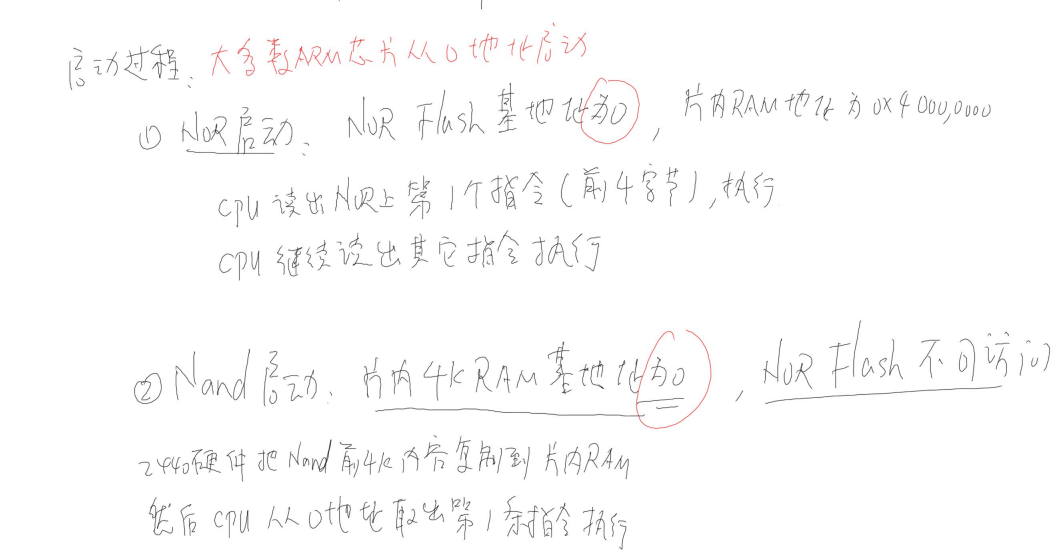 启动过程：大多数ARM芯片从0地址启动
① NOR启动：NOR Flash基地址为0，片内RAM地址为0x4000,0000
CPU读出NOR上第1个指令(前4字节)，执行
CPU继续读出其它指令执行
② Nand启动：片内4K RAM基地址为0，NOR Flash不可访问
2440硬件把Nand前4K内容复制到片内RAM
然后CPU从0地址取出第1条指令执行